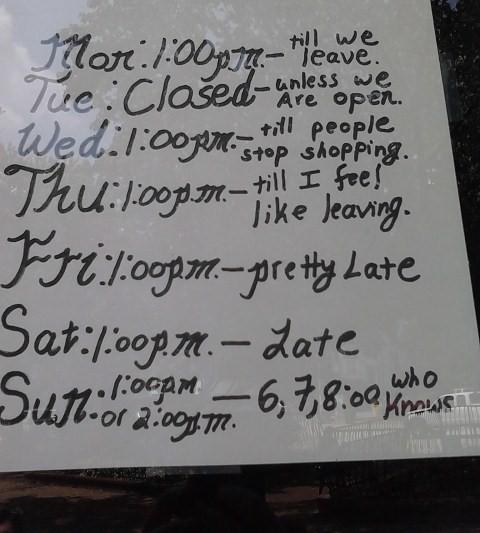 Mon: 1:00p.m. – till we
leave.
Tue: Closed – unless we
Are open.
Wed: 1:00p.m. – till people
stop shopping.
Thu: 1:00p.m. – till I feel
like leaving.
Fri: 1:00p.m. – pretty Late
Sat: 1:00p.m. – Late
Sun: 1:00p.m. or 2:00p.m. – 6, 7, 8:00, who
knows